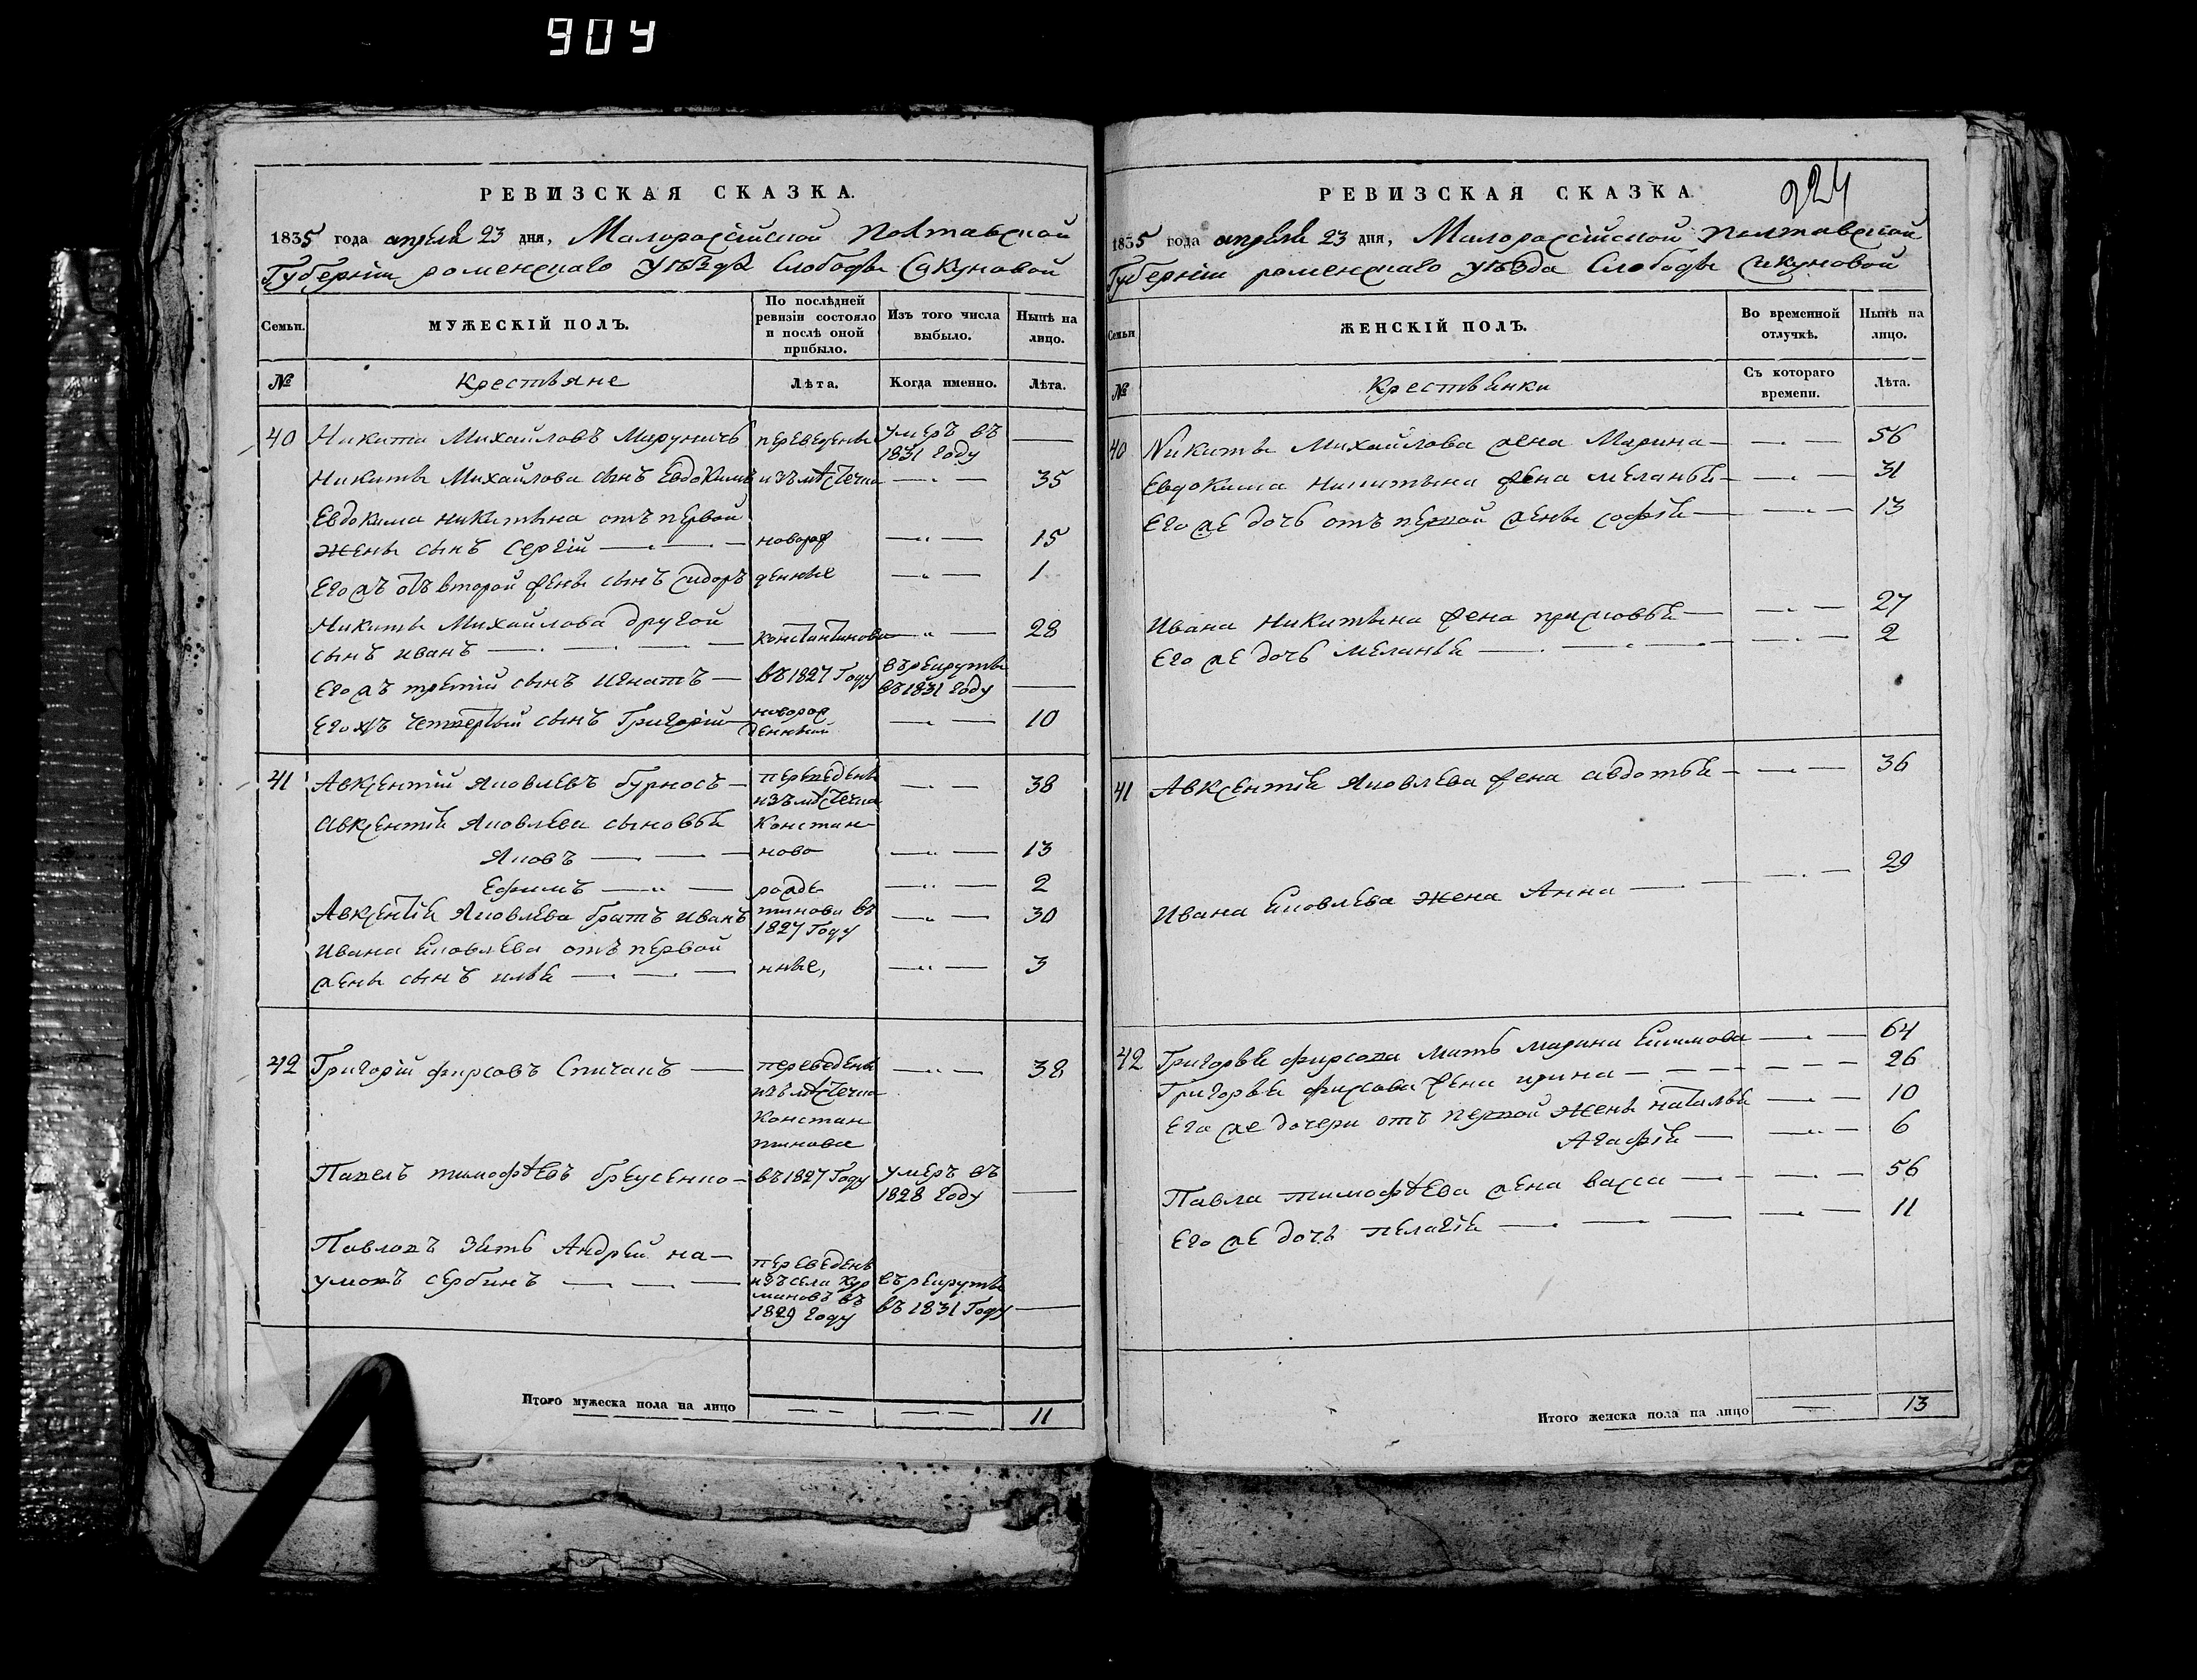 904
РЕВИЗСКАЯ СКАЗКА.
1835 года апреля 23 дня, Малороссійской Полтавской
Губерніи роменскаго уѣзда Слободы Сакуновой
Семьи.
МУЖЕСКІЙ ПОЛЪ.
По послѣдней ревизіи состояло и послѣ оной прибыло.
Изъ того числа выбыло.
Нынѣ на лицо.
№
Крестьяне
Лѣта.
Когда именно.
Лѣта.
40 Никита Михайловъ переведены умеръ въ 1831 году —
Никиты Михайлова сынъ Евдокимъ изъ мѣстечка —„— 35
Евдокима никитина отъ первой
жены сынъ Сергій —„— новорож —„— 15
Его жъ отъ второй жены сынъ Сидоръ денные —„— 1
Никиты Михайлова другой
сынъ иванъ —„— Константинова —„— 28
Его жъ третій сынъ Игнатъ — въ 1827 Году въ рекруты въ 1831 году —
Его жъ четвертый сынъ Григорій новорож денный —„— 10
41 Авксентій Яковлевъ бурносъ — переведены изъ мѣстечка —„— 38
Авксентія Яковлева сыновья Констан
Яковъ —„— ново —„— 13
Ефимъ —„— рожде —„— 2
Авксентія Яковлева братъ иванъ тинова въ 1827 Году —„— 30
Ивана Яковлева отъ первой
жены сынъ илья —„— нные, —„— 3
42 Григорій фирсовъ Спичакъ — переведены —„— 38
изъ мѣстечка
Констан
тинова
Павелъ тимофѣевъ бреусенко — въ 1827 Году умеръ въ 1828 году —
Павловъ зять Андрей на—
умовъ сербинъ —„— переведенъ изъ села въ 1829 году въ рекруты въ 1831 Году —
Итого мужеска пола на лицо —„— —„— 11
РЕВИЗСКАЯ СКАЗКА
224
1835 года апреля 23 дня, Малороссійской полтавской
Губерніи роменскаго уѣзда Слободы Сакуновой
Семьи
ЖЕНСКІЙ ПОЛЪ.
Во временной отлучкѣ.
Нынѣ на лицо.
№
Крестьянки
Съ котораго времени.
Лѣта.
40 Никиты Михайлова жена Марина — —„— 56
Евдокима Никитина жена меланья — —„— 31
Его же дочь отъ первой жены софья — —„— 13
Ивана Никитина жена — —„— 27
Его же дочь меланья —„— —„— 2
41 Авксентія Яковлева жена авдотья — —„— 36
Ивана Яковлева жена Анна —„— —„— 29
42 Григорья фирсова мать марина —„— 64
Григорья фирсова жена ирина — — — — 26
Его же дочери отъ первой жены наталья —„— 10
Агафія — —„— 6
Павла тимофѣева жена васса —„— —„— 56
Его же дочь пелагія —„— —„— 11
Итого женска пола на лицо — 13